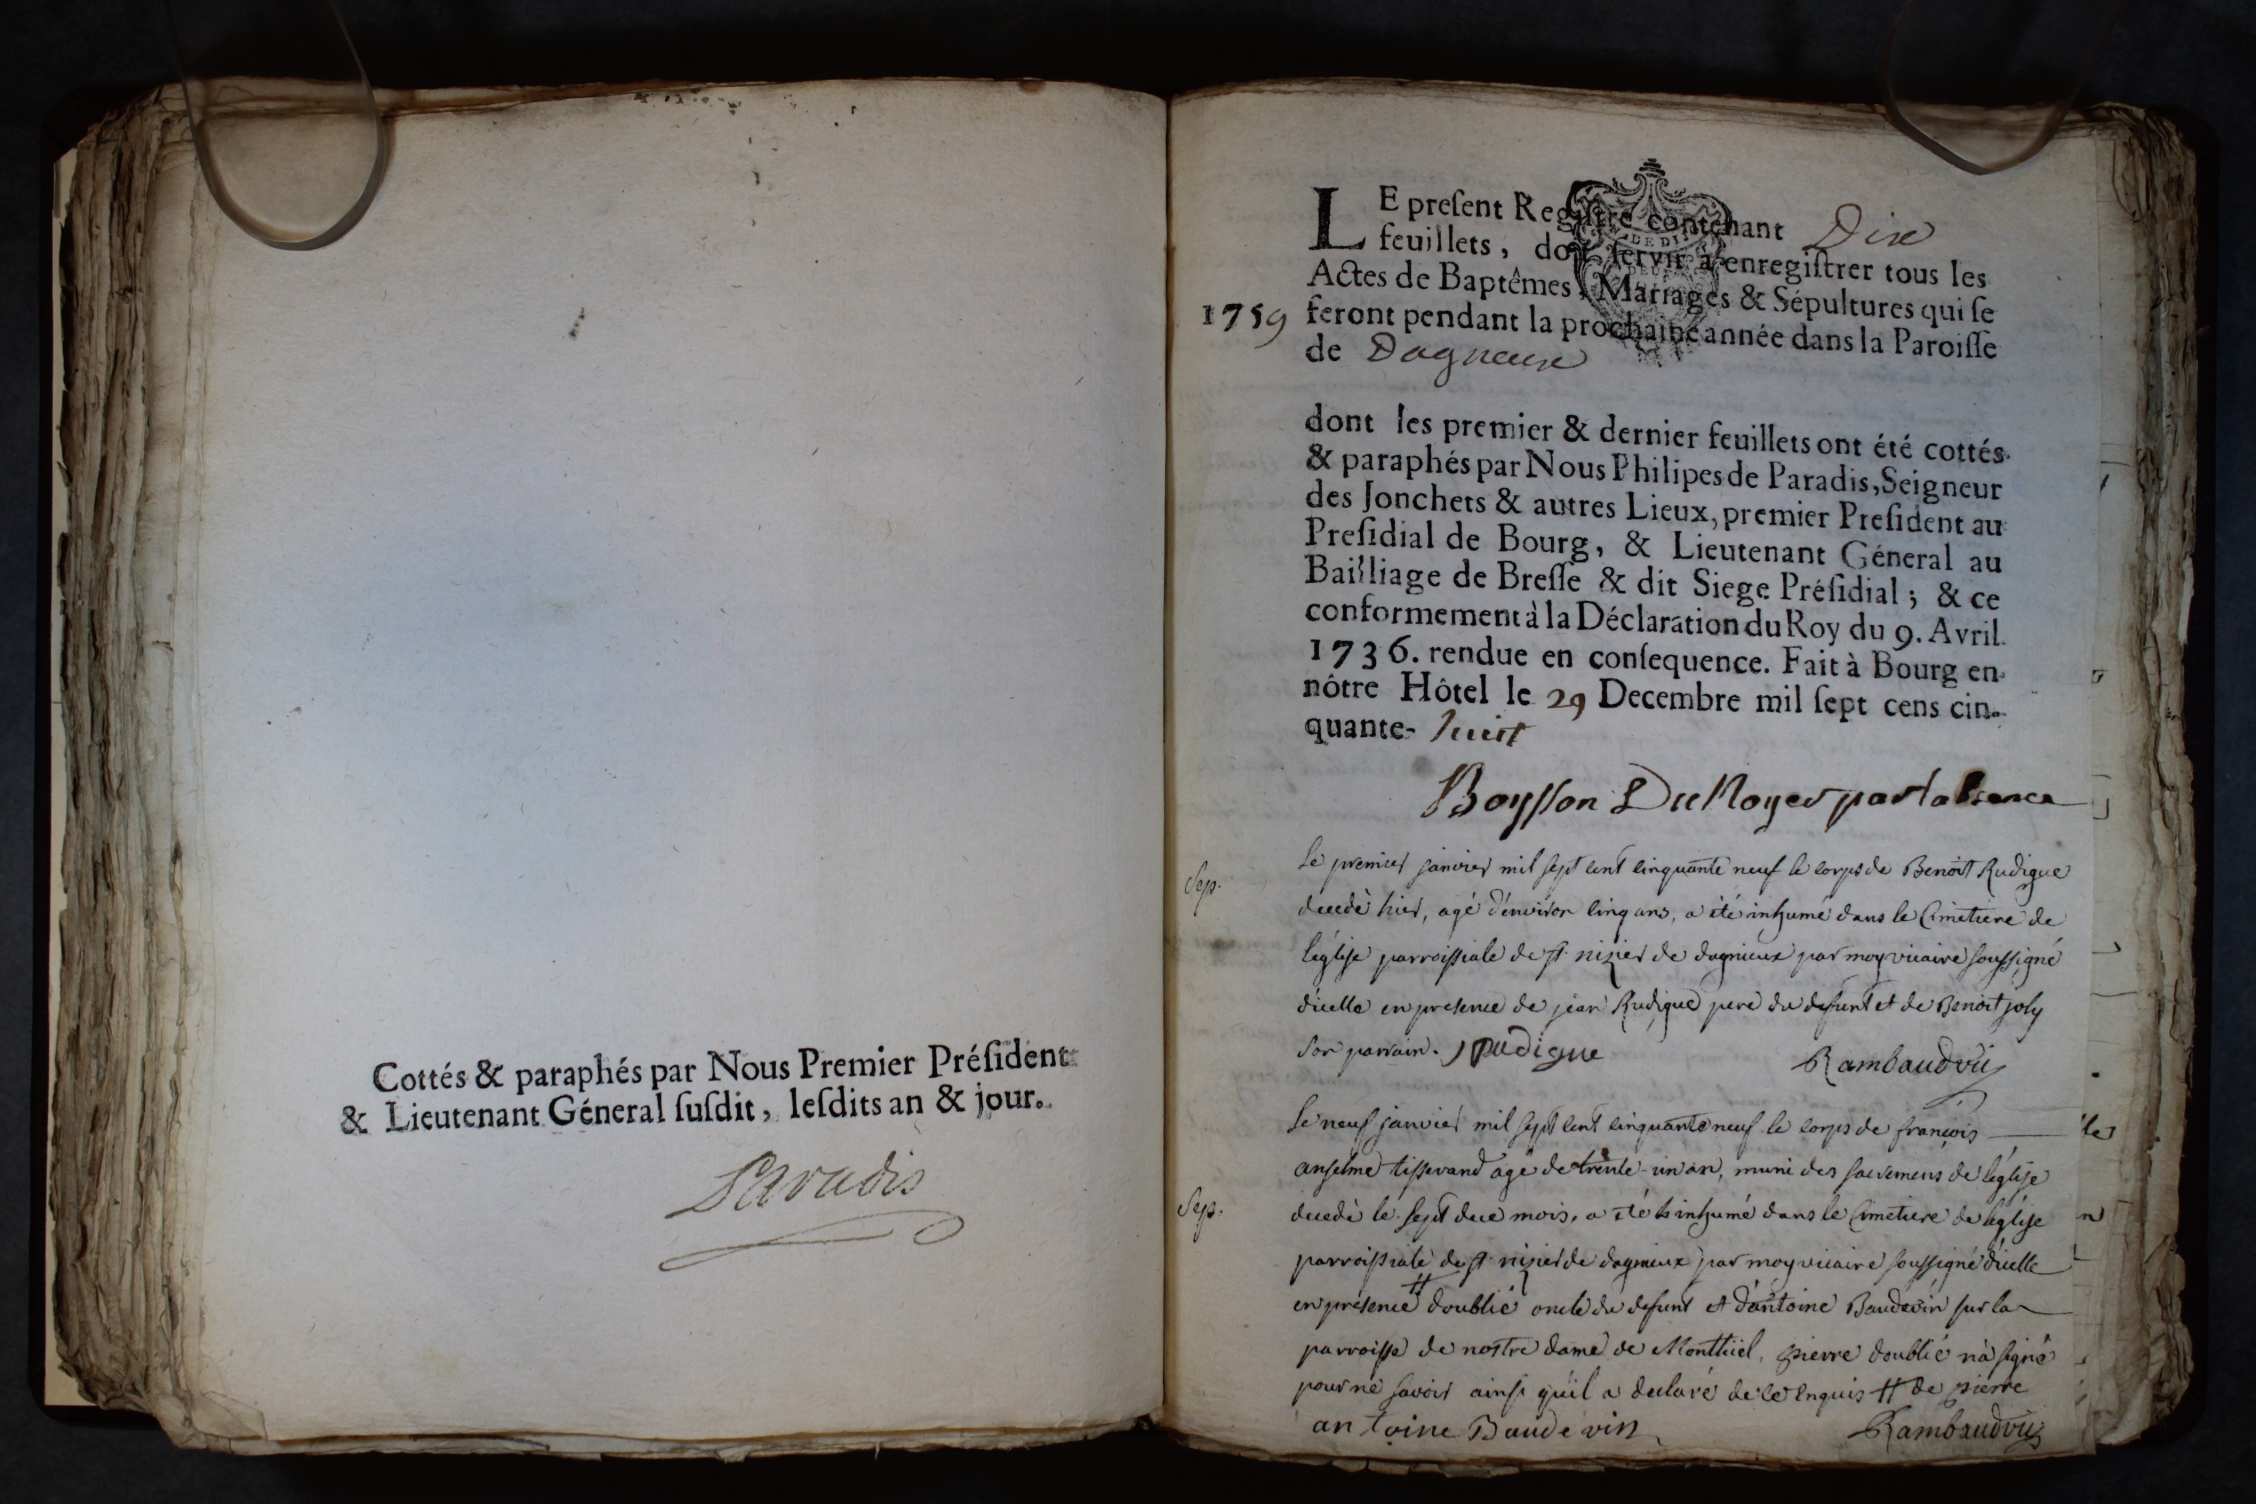 Cottés & paraphés par Nous Premier Préſident
& Lieutenant Géneral ſuſdit, leſdits an & jour.
Paradis
LE preſent Regiſtre contenant Dix
feuillets, doit ſervir à enregiſtrer tous les
Actes de Baptêmes, Mariages & Sépultures qui ſe
1759 feront pendant la prochaine année dans la Paroiſſe
de Dagneux
dont les premier & dernier feuillets ont été cottés
& paraphés par Nous Philipes de Paradis, Seigneur
des Jonchets & autres Lieux, premier Preſident au
Preſidial de Bourg, & Lieutenant Géneral au
Bailliage de Breſſe & dit Siege Préſidial; & ce
conformement à la Déclaration du Roy du 9. Avril
1736. rendue en conſequence. Fait à Bourg en
nôtre Hôtel le 29 Decembre mil ſept cens cin-
quante- huit
Boysson DuNoyer par labsence
Sep. Le premier janvier mil sept cent cinquante neuf le corps de Benoit Rudigue
decedé hier, agé d'environ cinq ans, a été inhumé dans le Cimetiere de
l'église parroissiale de st nizier de dagnieux par moy vicaire soussigné
d'icelle en presence de jean Rudigue pere du defunt et de Benoit joly
son parrain. J Rudigue Rambaud vic
Le neuf janvier mil sept cent cinquante neuf le corps de françois
anselme tisserand agé de trente-un an, muni des sacremens de l'église
Sep. decedé le sept du mois, a été inhumé dans le Cimetiere de l'église
parroissiale de st nizier de dagnieux par moy vicaire soussigné d'icelle
en présence # doublié oncle du defunt et d'antoine Baudevin sur la
parroisse de nostre dame de Montluel, pierre doublié n'a signé
pour ne savoir ainsi qu'il a declaré de ce enquis # de pierre
antoine Baudevin Rambaud vic